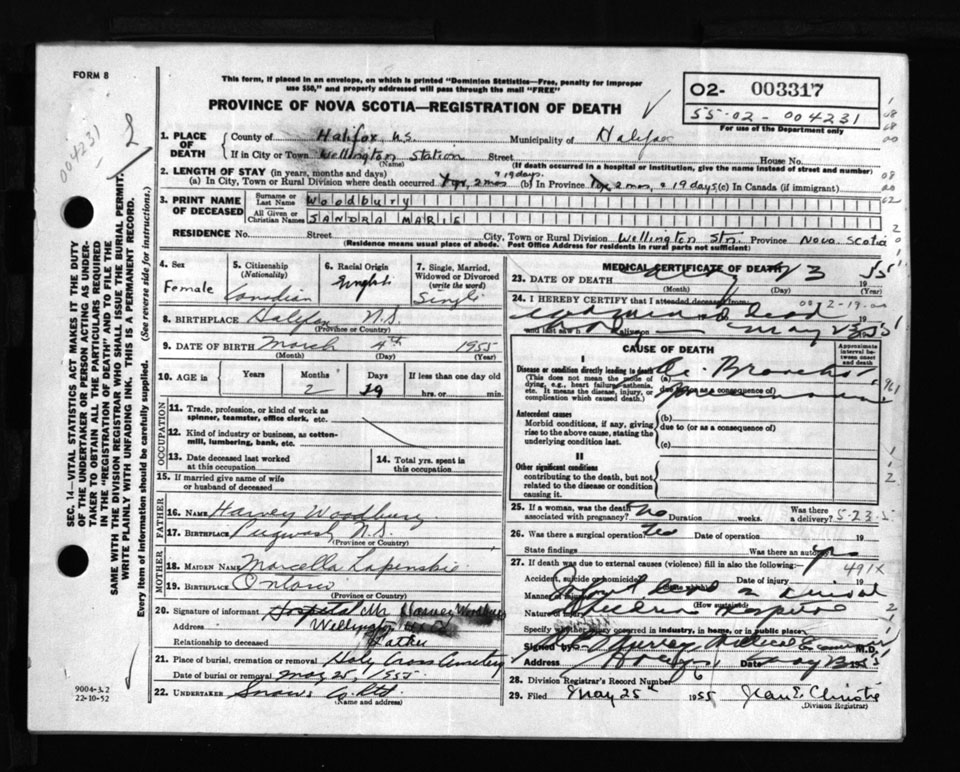 FORM 8
This form, if placed in an envelope, on which is printed "Dominion Statistics—Free, penalty for improper
use $50," and properly addressed will pass through the mail "FREE"
PROVINCE OF NOVA SCOTIA—REGISTRATION OF DEATH
02- 003317
55-02-004231
For use of the Department only
004231
SEC. 14—VITAL STATISTICS ACT MAKES IT THE DUTY
OF THE UNDERTAKER OR PERSON ACTING AS UNDER-
TAKER TO OBTAIN ALL THE PARTICULARS REQUIRED
IN THE "REGISTRATION OF DEATH" AND TO FILE THE
SAME WITH THE DIVISION REGISTRAR WHO SHALL ISSUE THE BURIAL PERMIT.
WRITE PLAINLY WITH UNFADING INK. THIS IS A PERMANENT RECORD.
Every item of information should be carefully supplied. (See reverse side for instructions.)
1. PLACE OF DEATH County of Halifax N.S. Municipality of Halifax
If in City or Town Wellington Station Street House No.
(Name) (If death occurred in a hospital or institution, give the name instead of street and number)
2. LENGTH OF STAY (in years, months and days)
(a) In City, Town or Rural Division where death occurred 2 mos & 19 days. (b) In Province 2 mos, & 19 days (c) In Canada (if immigrant)
3. PRINT NAME OF DECEASED Surname or Last Name Woodbury
All Given or Christian Names SANDRA MARIE
RESIDENCE No. Street City, Town or Rural Division Wellington Stn. Province Nova Scotia
(Residence means usual place of abode. Post Office Address for residents in rural parts not sufficient)
4. Sex Female
5. Citizenship (Nationality) Canadian
6. Racial Origin English
7. Single, Married, Widowed or Divorced (write the word) Single
8. BIRTHPLACE Halifax N.S.
(Province or Country)
9. DATE OF BIRTH March 4th 1955
(Month) (Day) (Year)
10. AGE in Years Months 2 Days 19 If less than one day
hrs. or min.
OCCUPATION
11. Trade, profession, or kind of work as
spinner, teamster, office clerk, etc.
12. Kind of industry or business, as cotton-
mill, lumbering, bank, etc.
13. Date deceased last worked
at this occupation
14. Total yrs. spent in
this occupation
15. If married give name of wife
or husband of deceased
FATHER
16. NAME Harvey Woodbury
17. BIRTHPLACE Pugwash N.S.
(Province or Country)
MOTHER
18. MAIDEN NAME Marcella Lapenskie
19. BIRTHPLACE Ontario
(Province or Country)
20. Signature of informant Harvey Woodbury
Address Wellington
Relationship to deceased Father
21. Place of burial, cremation or removal Holy Cross Cemetery
Date of burial or removal May 25, 1955
22. UNDERTAKER Snows Co Ltd
(Name and address)
9004-3.2
22-10-52
MEDICAL CERTIFICATE OF DEATH
23. DATE OF DEATH 1955
(Month) (Day)
24. I HEREBY CERTIFY that I attended deceased from
and last saw h alive on May 23 1955
CAUSE OF DEATH
Approximate interval between onset and death
I
Disease or condition directly leading to death
(This does not mean the mode of
dying, e.g., heart failure, asthenia,
etc. It means the disease, injury, or
complication which caused death.)
(a) Ac. Broncho
due to (or as a consequence of)
Pneumonia
Antecedent causes
Morbid conditions, if any, giving
rise to the above cause, stating the
underlying condition last.
(b)
due to (or as a consequence of)
(c)
II
Other significant conditions
contributing to the death, but not
related to the disease or condition
causing it.
25. If a woman, was the death
associated with pregnancy? No Duration weeks. Was there
a delivery?
5-23-5
26. Was there a surgical operation? Date of operation 19
State findings Was there an autopsy? yes
27. If death was due to external causes (violence) fill in also the following:
491X
Accident, suicide or homicide? Date of injury 19
Manner of injury
(How sustained)
Nature of injury Children's Hospital
Specify whether injury occurred in industry, in home, or in public place
Signed by Medical Examiner M.D.
Address Halifax Date May 23 1955
28. Division Registrar's Record Number
29. Filed May 25th 1955 Jean E. Christie
(Division Registrar)